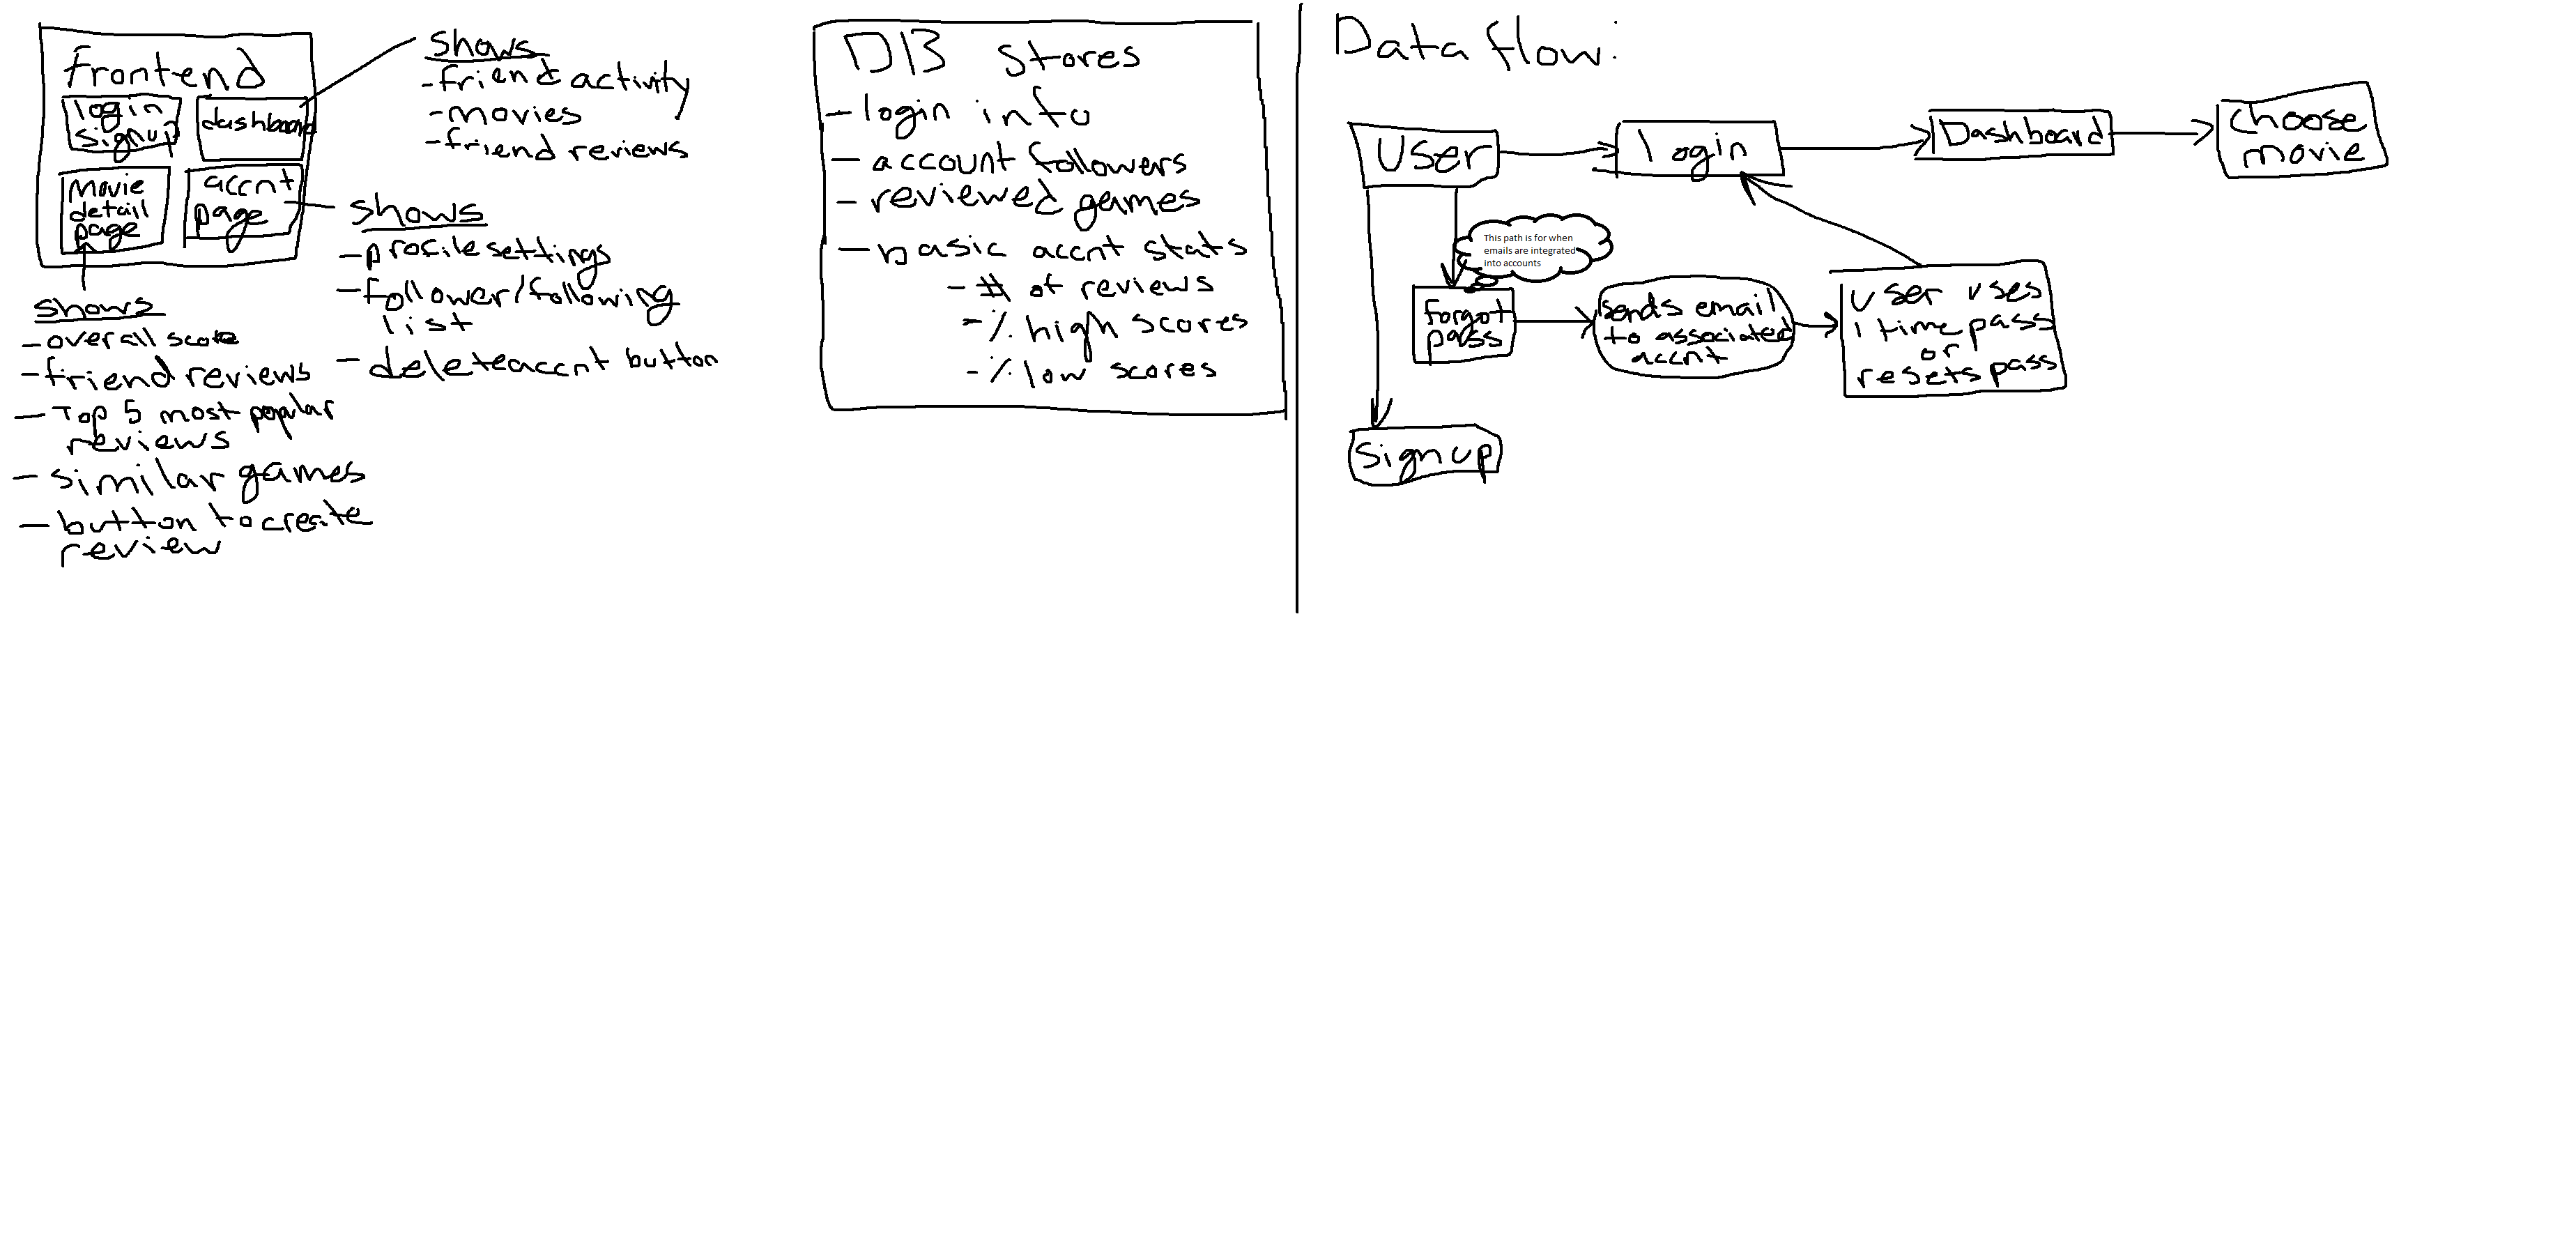 frontend
login
signup
dashboard
Movie
detail
page
accnt
page
shows
-friend activity
-movies
-friend reviews
shows
-profile settings
-follower/following
list
-delete accnt button
shows
-overall score
-friend reviews
-Top 5 most popular
reviews
-similar games
-button to create
review
DB stores
-login info
-account followers
-reviewed games
-basic accnt stats
-# of reviews
-% high scores
-% low scores
Data flow:
User
login
Dashboard
choose
movie
This path is for when
emails are integrated
into accounts
forgot
pass
sends email
to associated
accnt
User uses
1 time pass
or
resets pass
Sign up